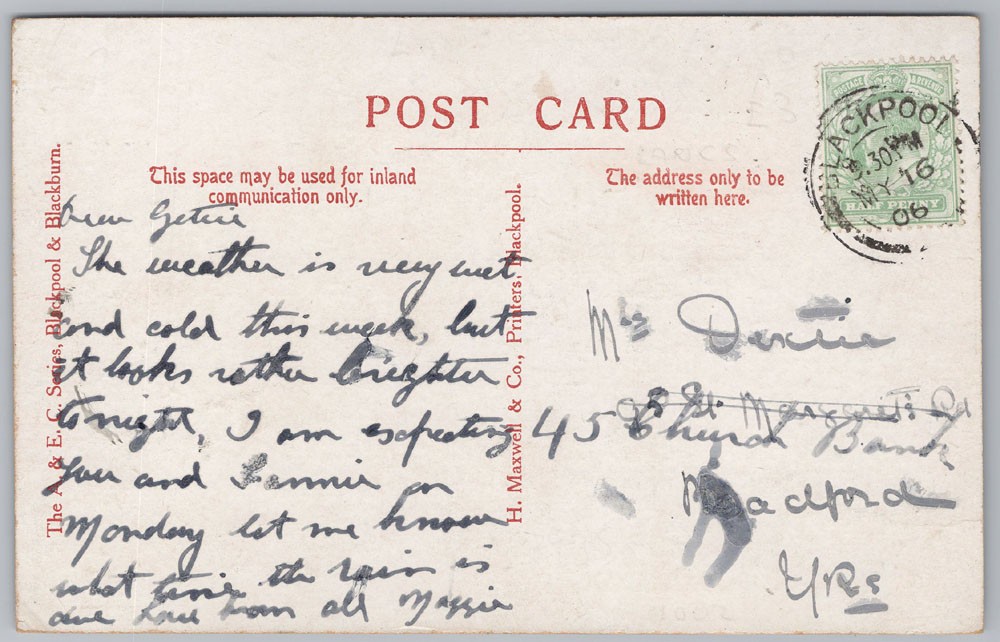 POST CARD
This space may be used for inland
communication only.
The address only to be
written here.
The A. & E. C. Series, Blackpool & Blackburn.
H. Maxwell & Co., Printers, Blackpool.
BLACKPOOL
9.30PM
MY 16
06
POSTAGE & REVENUE
HALF PENNY
Dear Gertie
The weather is very wet
and cold this week, but
it looks rather brighter
tonight, I am expecting
you and Lennie on
Monday let me know
what time the train is
due Love from all Maggie
Mrs
8 St Margarets Rd
45 Church Bank
Bradford
Yks